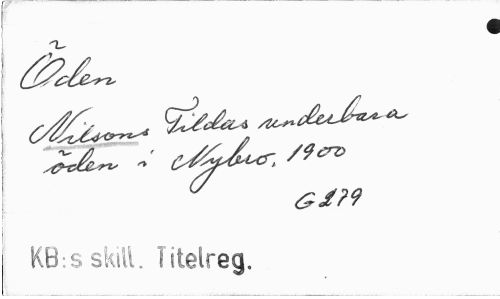 Öden
Nilsons Tildas underbara
öden i Nybro, 1900
G 279
KB:s skill. Titelreg.